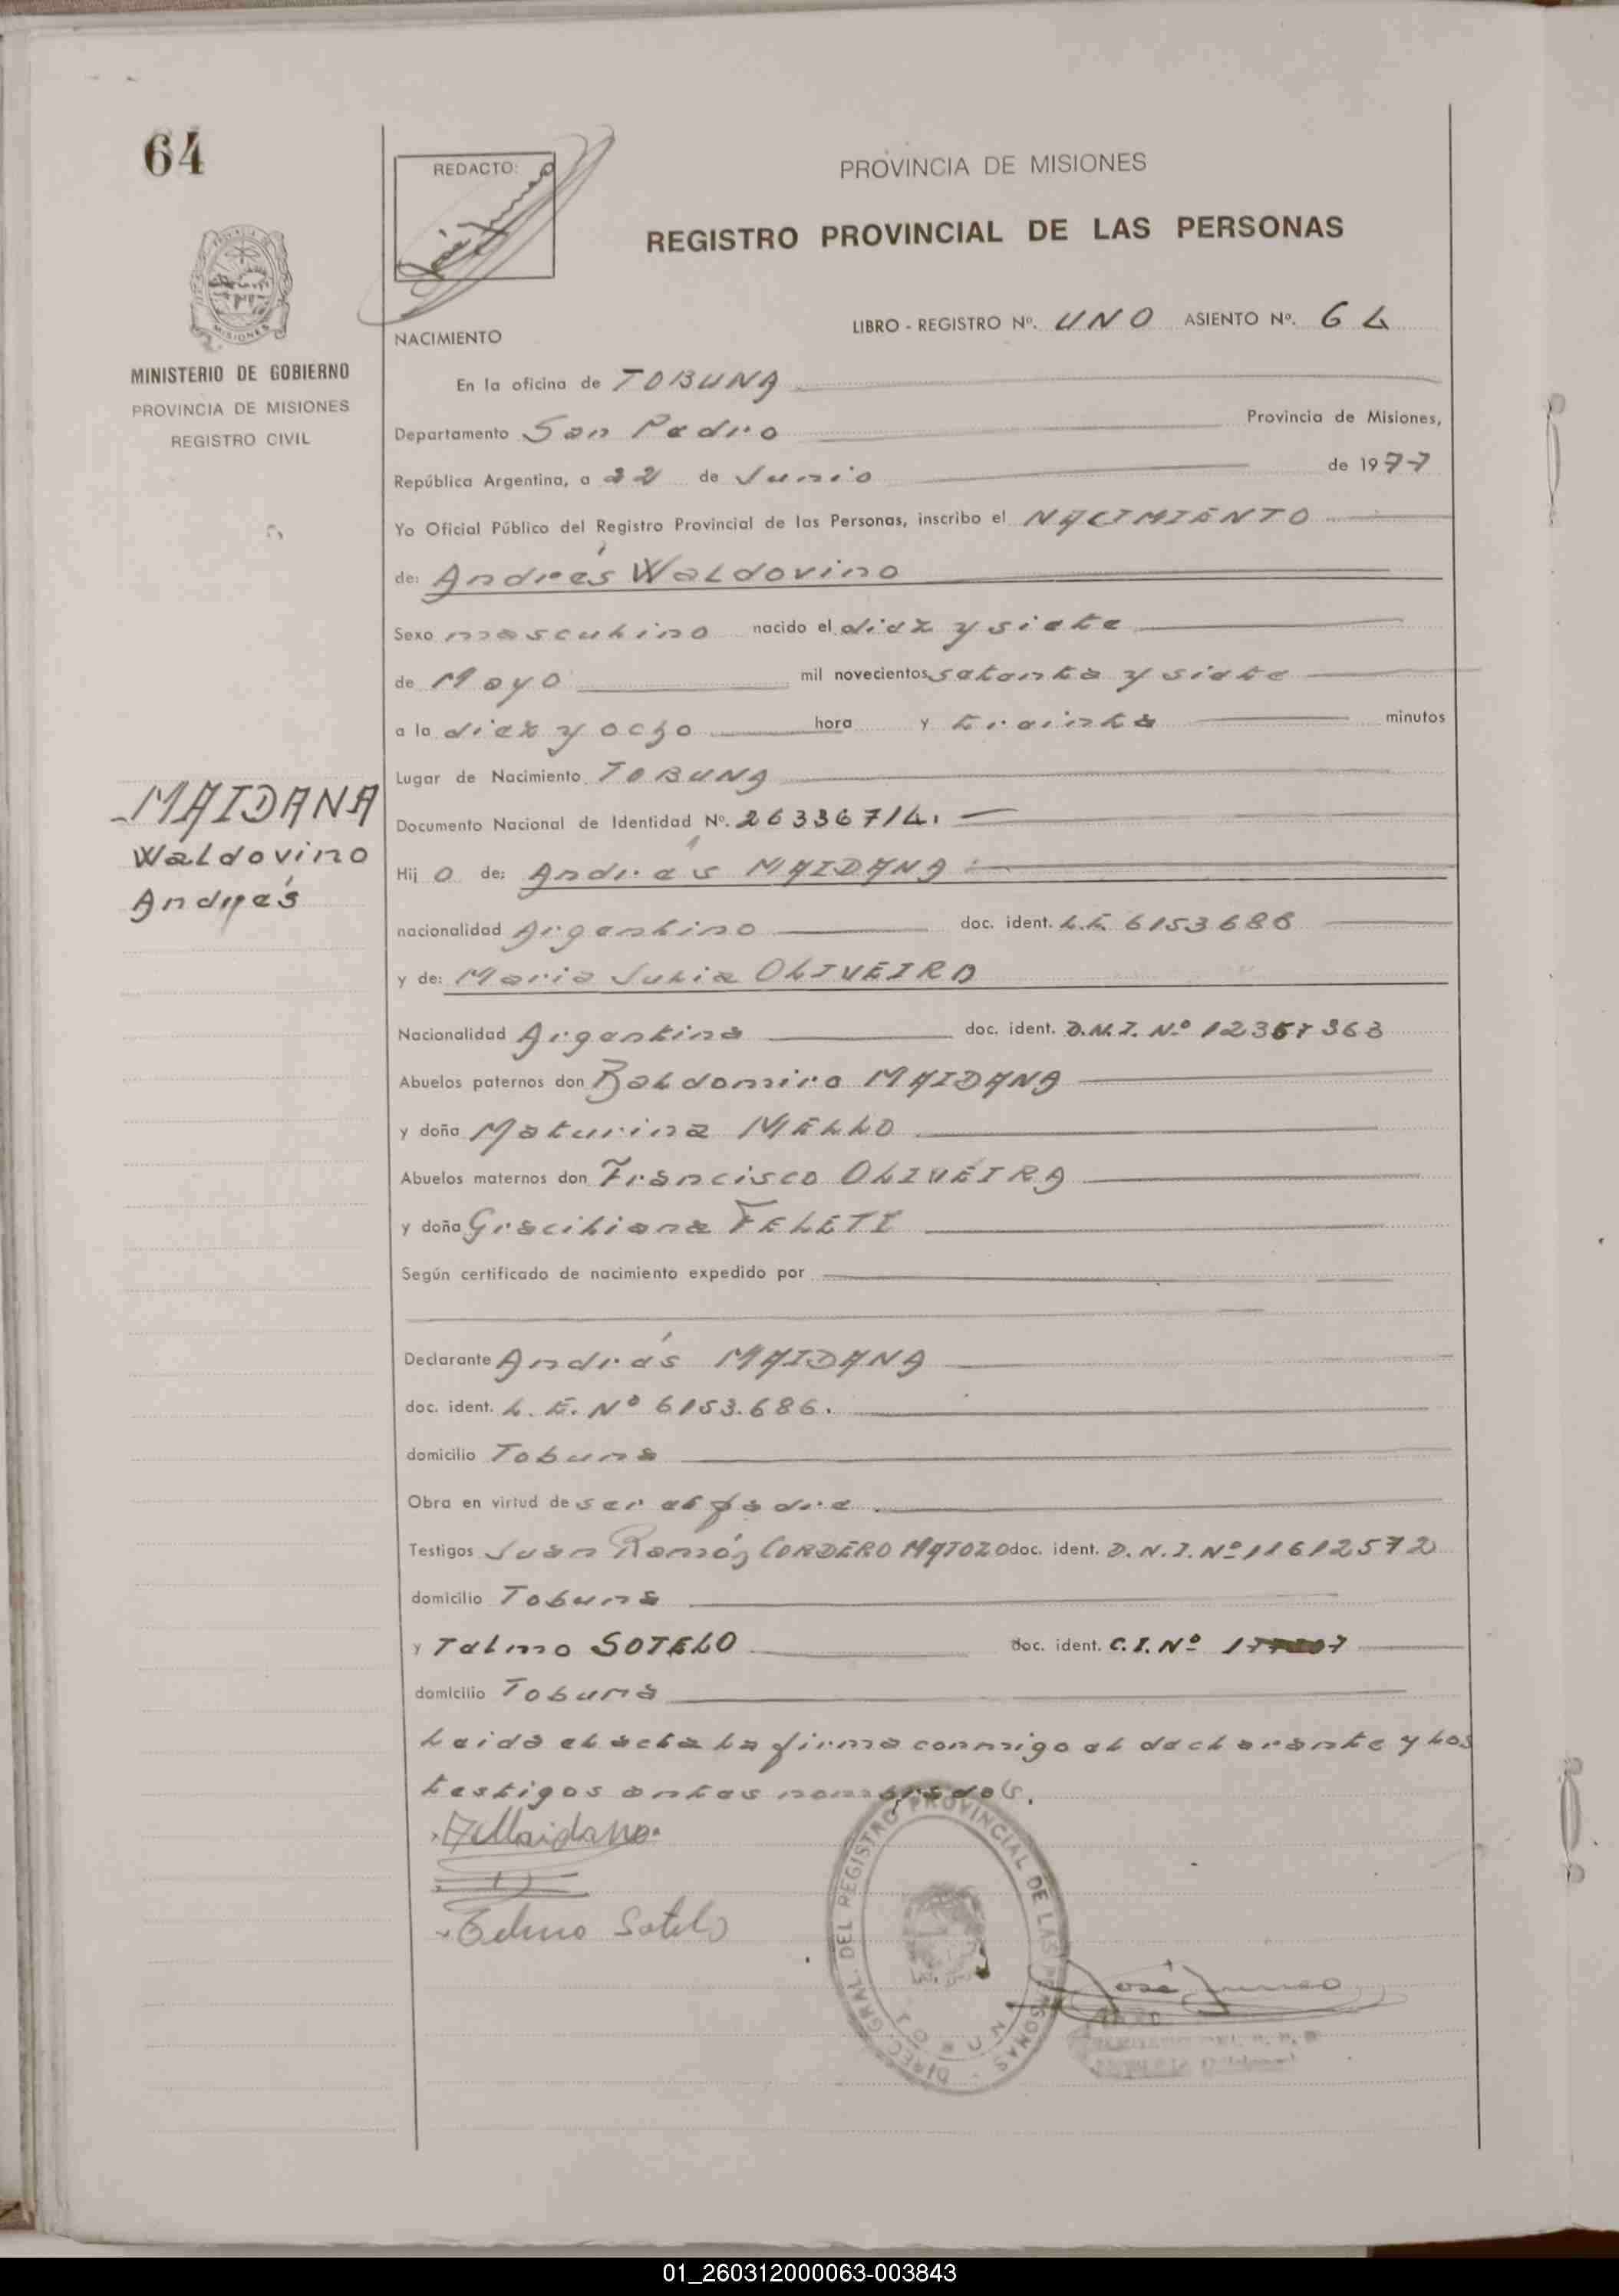 64
REDACTO:
PROVINCIA DE MISIONES
REGISTRO PROVINCIAL DE LAS PERSONAS
MISIONES
MINISTERIO DE GOBIERNO
PROVINCIA DE MISIONES
REGISTRO CIVIL
LIBRO - REGISTRO Nº. UNO ASIENTO Nº. 64
NACIMIENTO
En la oficina de TOBUNA
Departamento San Pedro Provincia de Misiones,
República Argentina, a 22 de Junio de 1977
Yo Oficial Público del Registro Provincial de las Personas, inscribo el NACIMIENTO
de: Andrés Waldovino
Sexo masculino nacido el diez y siete
de Mayo mil novecientos setenta y siete
a la diez y ocho hora y treinta minutos
Lugar de Nacimiento TOBUNA
MAIDANA
Waldovino
Andrés
Documento Nacional de Identidad Nº. 26336714.
Hij o de: Andrés MAIDANA
nacionalidad Argentino doc. ident. L.E. 6153686
y de: Maria Julia OLIVEIRA
Nacionalidad Argentina doc. ident. D.N.I. Nº 12367363
Abuelos paternos don Baldomiro MAIDANA
y doña Maturina MELLO
Abuelos maternos don Francisco OLIVEIRA
y doña Graciliana FELETI
Según certificado de nacimiento expedido por
Declarante Andrés MAIDANA
doc. ident. L.E. Nº 6153.686.
domicilio Tobuna
Obra en virtud de ser el padre.
Testigos Juan Ramón CORDERO MATOZO doc. ident. D.N.I. Nº 11612572
domicilio Tobuna
y Telmo SOTELO doc. ident. C.I. Nº
domicilio Tobuna
Leida el acta la firma conmigo el declarante y los
testigos antes nombrados.
A Maidana.
Telmo Sotelo
DIREC. GRAL. DEL REGISTRO PROVINCIAL DE LAS PERSONAS
TOBUNA
José Junco
01_260312000063-003843